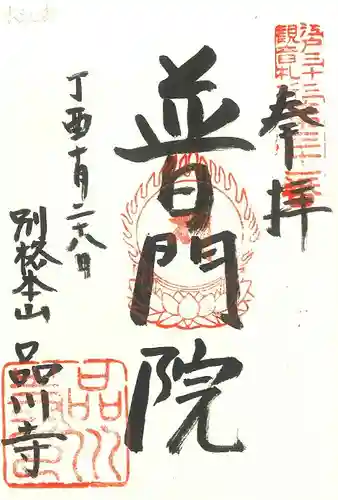 奉拝
江戸三十三
観音札
普門院
丁酉十月二十八日
別格本山
品川寺
品川